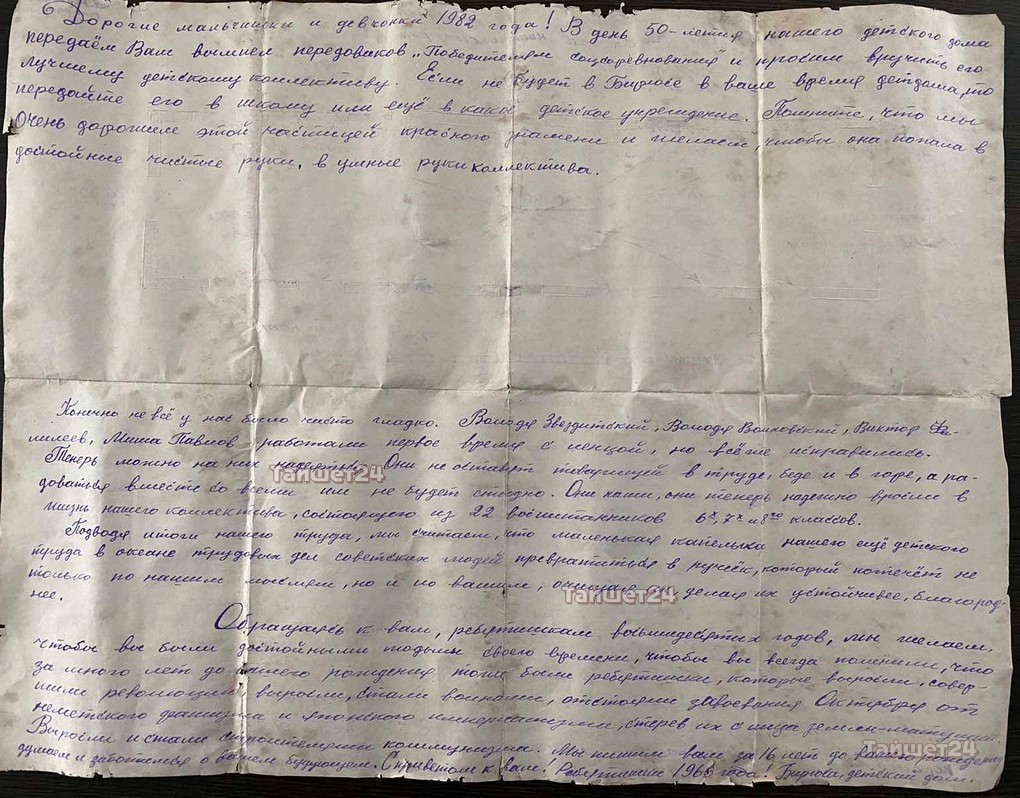 Дорогие мальчишки и девчонки 1982 года! В день 50-летия нашего детского дома
передаём Вам вымпел передовиков „Победителям соцсоревнования" и просим вручить его
лучшему детскому коллективу. Если не будет в Бирюсе в ваше время детдома, то
передайте его в школу или ещё в какое детское учреждение. Помните, что мы
очень дорожили этой частицей красного знамени и желаем, чтобы она попала в
достойные чистые руки, в умные руки коллектива.
Конечно не всё у нас было чисто гладко. Володя Звездитский, Володя Волковский, Виктор
Миша Павлов работали первое время с ленцой, но всё же исправились.
Теперь можно на них надеяться. Они не оставят товарищей в труде, беде и в горе, а ра-
доваться вместе со всеми им не будет стыдно. Они наши, они теперь надежно вросли в
жизнь нашего коллектива, состоящего из 22 воспитанников 6х, 7х и 8го классов.
Подводя итоги нашего труда, мы считаем, что маленькая капелька нашего ещё детского
труда в океане трудовых дел советских людей превратиться в ручеёк, который потечёт не
только по нашим мыслям, но и по вашим, очищая и делая их устойчивее, благород-
нее.
Обращаясь к вам, ребятишкам восьмидесятых годов, мы желаем,
чтобы вы были достойными людьми своего времени, чтобы вы всегда помнили, что
за много лет до вашего рождения тоже были ребятишки, которые выросли, совер-
шили революцию, выросли, стали воинами, отстояли завоевания Октября от
немецкого фашизма и японского империализма, стерев их с лица земли-матушки.
Выросли и стали строителями коммунизма. Мы пишем вам за 16 лет до вашего рождения,
думаем и заботимся о вашем будующем. С приветом к вам! Ребятишки 1966 года! Бирюса, детский дом.
Тайшет24
Тайшет24
Тайшет24